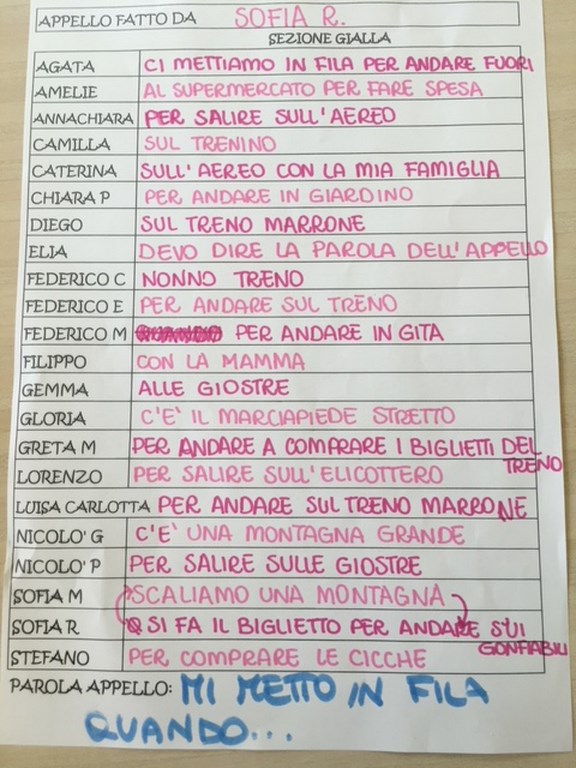 APPELLO FATTO DA SOFIA R.
SEZIONE GIALLA
AGATA CI METTIAMO IN FILA PER ANDARE FUORI
AMELIE AL SUPERMERCATO PER FARE SPESA
ANNACHIARA PER SALIRE SULL'AEREO
CAMILLA SUL TRENINO
CATERINA SULL'AEREO CON LA MIA FAMIGLIA
CHIARA P PER ANDARE IN GIARDINO
DIEGO SUL TRENO MARRONE
ELIA DEVO DIRE LA PAROLA DELL'APPELLO
FEDERICO C NONNO TRENO
FEDERICO E PER ANDARE SUL TRENO
FEDERICO M PER ANDARE IN GITA
FILIPPO CON LA MAMMA
GEMMA ALLE GIOSTRE
GLORIA C'E' IL MARCIAPIEDE STRETTO
GRETA M PER ANDARE A COMPRARE I BIGLIETTI DEL
TRENO
LORENZO PER SALIRE SULL'ELICOTTERO
LUISA CARLOTTA PER ANDARE SUL TRENO MARRONE
NICOLO' G C'E' UNA MONTAGNA GRANDE
NICOLO' P PER SALIRE SULLE GIOSTRE
SOFIA M SCALIAMO UNA MONTAGNA
SOFIA R SI FA IL BIGLIETTO PER ANDARE SUI
GONFIABILI
STEFANO PER COMPRARE LE CICCHE
PAROLA APPELLO: MI METTO IN FILA
QUANDO...